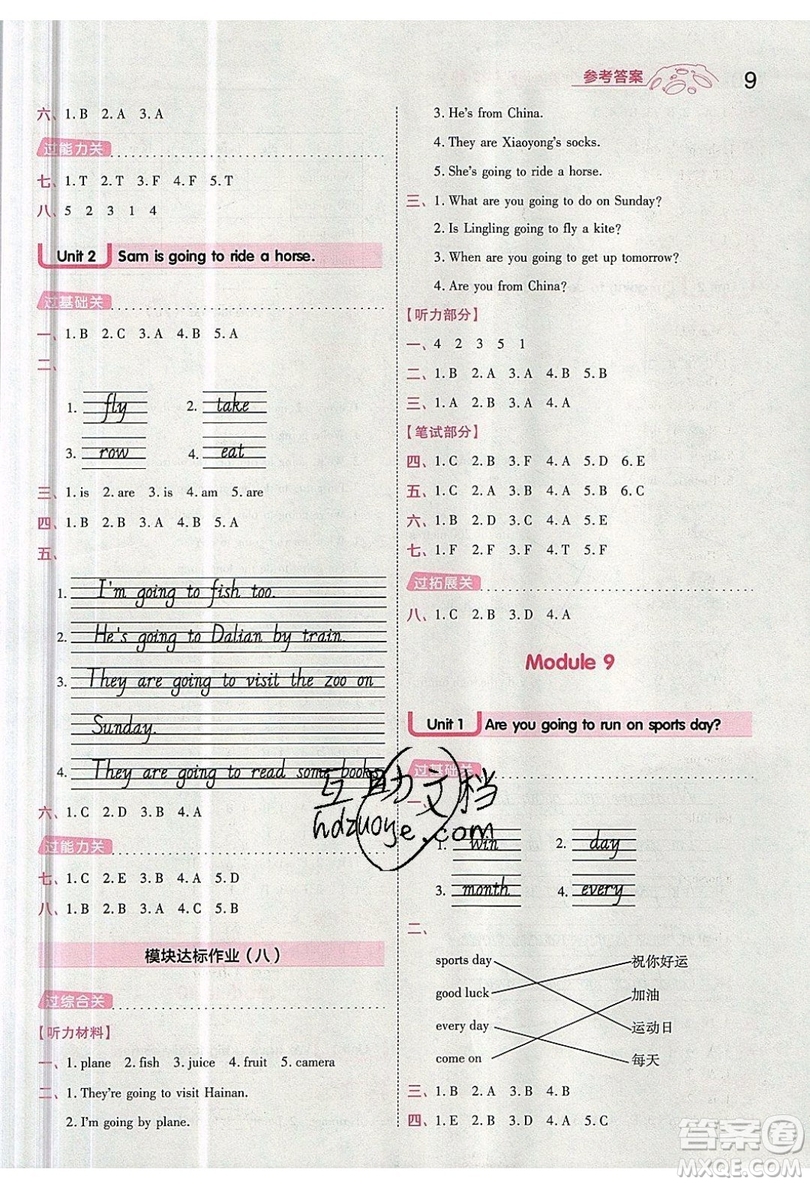 参考答案
9
六、1.B 2.A 3.A
过能力关
七、1.T 2.T 3.F 4.F 5.T
八、5 2 3 1 4
Unit 2 Sam is going to ride a horse.
过基础关
一、1.B 2.C 3.A 4.B 5.A
二、
1. fly 2. take
3. row 4. eat
三、1. is 2. are 3. is 4. am 5. are
四、1.B 2.B 3.A 4.B 5.A
五、
1. I'm going to fish too.
2. He's going to Dalian by train.
3. They are going to visit the zoo on
Sunday.
4. They are going to read some books.
六、1.C 2.D 3.A 4.B
过能力关
七、1.C 2.E 3.B 4.A 5.D
八、1.B 2.A 3.A 4.C 5.B
模块达标作业(八)
过综合关
【听力材料】
一、1. plane 2. fish 3. juice 4. fruit 5. camera
二、1. They're going to visit Hainan.
2. I'm going by plane.
3. He's from China.
4. They are Xiaoyong's socks.
5. She's going to ride a horse.
三、1. What are you going to do on Sunday?
2. Is Lingling going to fly a kite?
3. What are you going to get up tomorrow?
4. Are you from China?
【听力部分】
一、4 2 3 5 1
二、1.B 2.A 3.A 4.B 5.B
三、1.A 2.B 3.B 4.A
【笔试部分】
四、1.C 2.B 3.F 4.A 5.D 6.E
五、1.C 2.B 3.A 4.A 5.B 6.C
六、1.B 2.C 3.D 4.A 5.E
七、1.F 2.F 3.F 4.T 5.F
过拓展关
八、1.C 2.B 3.D 4.A
Module 9
Unit 1 Are you going to run on sports day?
过基础关
一、
1. win 2. day
3. month 4. every
二、
sports day 祝你好运
good luck 加油
every day 运动日
come on 每天
三、1.B 2.A 3.B 4.B
四、1.E 2.B 3.D 4.A 5.C
互助文档
hdzuoye.com
答案圈
MXQE.COM